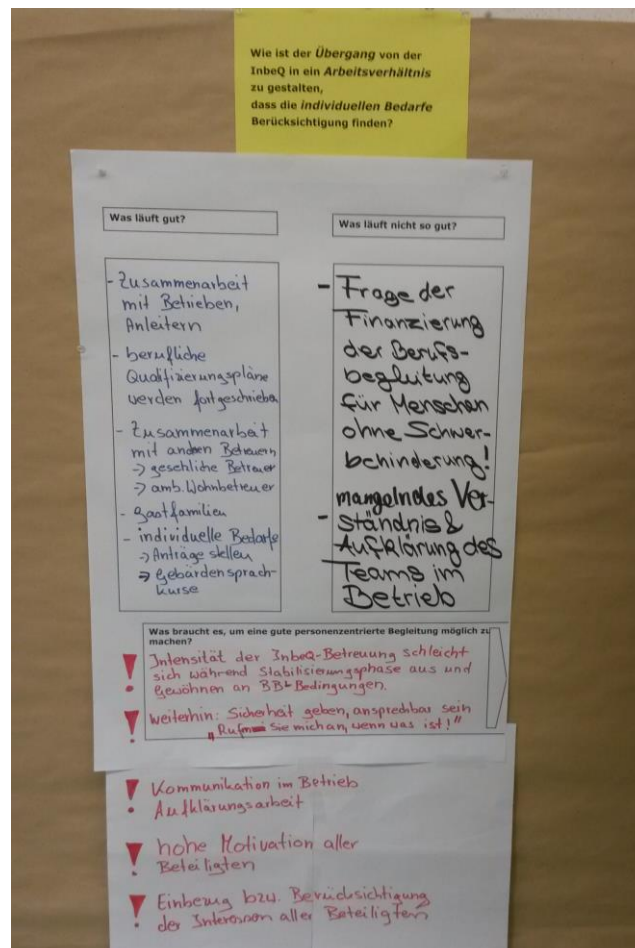 Wie ist der Übergang von der
InbeQ in ein Arbeitsverhältnis
zu gestalten,
dass die individuellen Bedarfe
Berücksichtigung finden?
Was läuft gut?
- Zusammenarbeit
mit Betrieben,
Anleitern
- berufliche
Qualifizierungspläne
werden fortgeschrieben
- Zusammenarbeit
mit anderen Betreuern
-> gesetzliche Betreuer
-> amb. Wohnbetreuer
- Gastfamilien
- individuelle Bedarfe
-> Anträge stellen
-> Gebärdensprach-
kurse
Was läuft nicht so gut?
- Frage der
Finanzierung
der Berufs-
begleitung
für Menschen
ohne Schwer-
behinderung!
mangelndes Ver-
- ständnis &
Aufklärung des
Teams im
Betrieb
Was braucht es, um eine gute personenzentrierte Begleitung möglich zu
machen?
! Intensität der InbeQ-Betreuung schleicht
sich während Stabilisierungsphase aus und
Gewöhnen an BB-Bedingungen.
! weiterhin: Sicherheit geben, ansprechbar sein
"Rufen Sie mich an, wenn was ist!"
! Kommunikation im Betrieb
Aufklärungsarbeit
! hohe Motivation aller
Beteiligten
! Einbezug bzw. Berücksichtigung
der Interessen aller Beteiligten